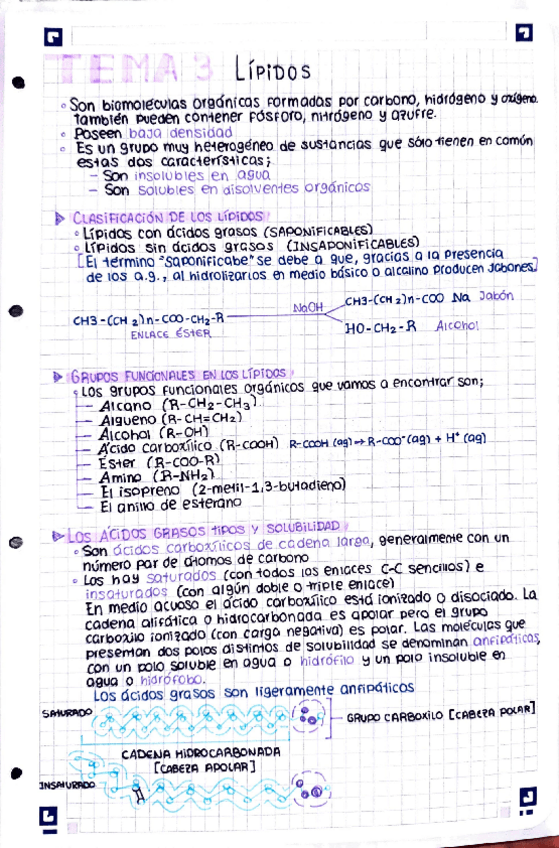 TEMA 3 LÍPIDOS
◦ Son biomoléculas orgánicas formadas por carbono, hidrógeno y oxígeno.
también pueden contener fósforo, nitrógeno y azufre.
◦ Poseen baja densidad
◦ Es un grupo muy heterogéneo de sustancias que sólo tienen en común
estas dos características;
— Son insolubles en agua
— Son solubles en disolventes orgánicos
CLASIFICACIÓN DE LOS LÍPIDOS
◦ Lípidos con ácidos grasos (SAPONIFICABLES)
◦ Lípidos sin ácidos grasos (INSAPONIFICABLES)
[El término "Saponificabe" se debe a que, gracias a la presencia
de los a.g., al hidrolizarlos en medio básico o alcalino producen jabones]
CH3-(CH2)n-COO-CH2-R
ENLACE ÉSTER
NaOH
CH3-(CH2)n-COO Na Jabón
HO-CH2-R Alcohol
GRUPOS FUNCIONALES EN LOS LÍPIDOS
◦ Los grupos funcionales orgánicos que vamos a encontrar son;
— Alcano (R-CH2-CH3)
— Algueno (R-CH=CH2)
— Alcohol (R-OH)
— Ácido carboxílico (R-COOH) R-COOH (aq) ↔ R-COO⁻(aq) + H⁺ (aq)
— Éster (R-COO-R)
— Amino (R-NH2)
— El isopreno (2-metil-1,3-butadieno)
— El anillo de esterano
LOS ÁCIDOS GRASOS TIPOS Y SOLUBILIDAD
◦ Son ácidos carboxílicos de cadena larga, generalmente con un
número par de átomos de carbono
◦ Los hay saturados (con todos los enlaces C-C sencillos) e
insaturados (con algún doble o triple enlace)
En medio acuoso el ácido carboxílico está ionizado o disociado. La
cadena alifática o hidrocarbonada es apolar pero el grupo
carboxilo ionizado (con carga negativa) es polar. Las moléculas que
presentan dos polos distintos de solubilidad se denominan anfipáticas,
con un polo soluble en agua o hidrófilo y un polo insoluble en
agua o hidrófobo.
Los ácidos grasos son ligeramente anfipáticos
SATURADO
GRUPO CARBOXILO [CABEZA POLAR]
CADENA HIDROCARBONADA
[CABEZA APOLAR]
INSATURADO